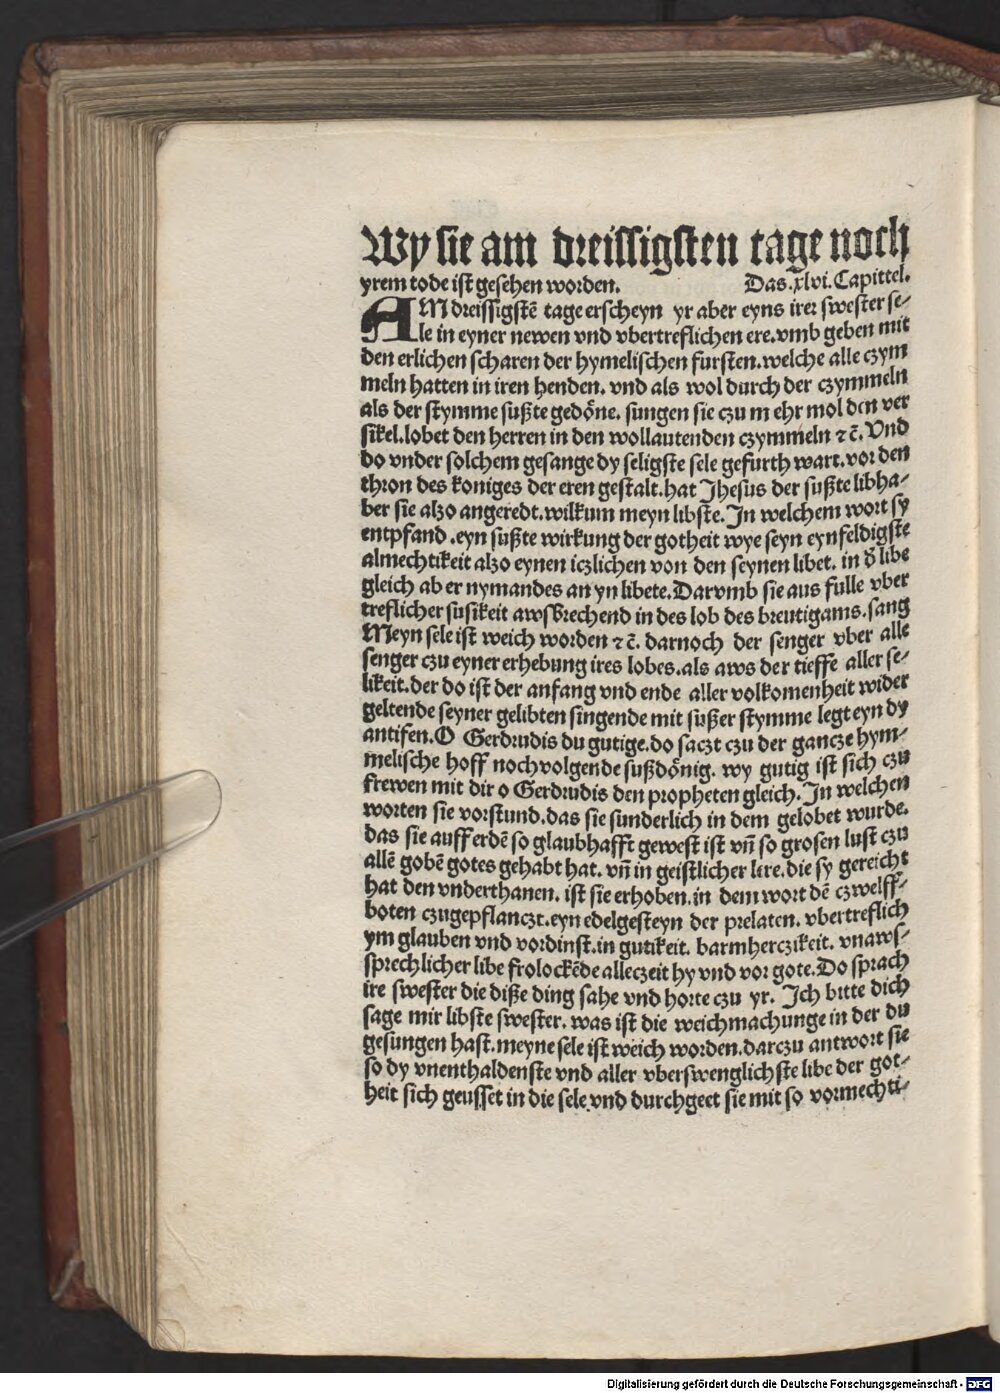 Wy sie am dreissigsten tage noch
yrem tode ist gesehen worden. Das .xlvi. Capittel.
AM dreissigstē tage erscheyn yr aber eyns irer swester se⸗
le in eyner newen vnd vbertreflichen ere. vmb geben mit
den erlichen scharen der hymelischen fursten. welche alle czym
meln hatten in iren henden. vnd als wol durch der czymmeln
als der stymme sußte gedöne. sungen sie czu m ehr mol den ver
sikel. lobet den herren in den wollautenden czymmeln ⁊ c̄. Vnd
do vnder solchem gesange dy seligste sele gefurth wart. vor den
thron des koniges der eren gestalt. hat Jhesus der sußte libha⸗
ber sie alzo angeredt. wilkum meyn libste. In welchem wort sy
entpfand .eyn sußte wirkung der gotheit wye seyn eynfeldigste
almechtikeit alzo eynen iczlichen von den seynen libet. in d̄ libe
gleich ab er nymandes an yn libete. Darvmb sie aus fulle vber
treflicher susikeit awsbrechend in des lob des breutigams. sang
Meyn sele ist weich worden ⁊ c̄. darnoch der senger vber alle
senger czu eyner erhebung ires lobes. als aws der tieffe aller se⸗
likeit. der do ist der anfang vnd ende aller volkomenheit wider
geltende seyner gelibten singende mit sußer stymme legt eyn dy
antifen. O Gerdrudis du gutige. do saczt czu der gancze hym⸗
melische hoff nochvolgende sußdönig. wy gutig ist sich czu
frewen mit dir o Gerdrudis den propheten gleich. In welchen
worten sie vorstund. das sie sunderlich in dem gelobet wurde.
das sie auff erdē so glaubhafft gewest ist vn̄ so grosen lust czu
allē gobē gotes gehabt hat. vn̄ in geistlicher lere. die sy gereicht
hat den vnderthanen. ist sie erhoben. in dem wort dē czwelff⸗
boten czugepflanczt. eyn edelgesteyn der prelaten. vbertreflich
ym glauben vnd vordinst. in gutikeit. barmherczikeit. vnaws⸗
sprechlicher libe frolockēde alleczeit hy vnd vor gote. Do sprach
ire swester die diße ding sahe vnd horte czu yr. Ich bitte dich
sage mir libste swester. was ist die weichmachunge in der du
gesungen hast. meyne sele ist weich worden. darczu antwort sie
so dy vnenthaldenste vnd aller vberswenglichste libe der got⸗
heit sich geusset in die sele vnd durchgeet sie mit so vormechti⸗
Digitalisierung gefördert durch die Deutsche Forschungsgemeinschaft - DFG